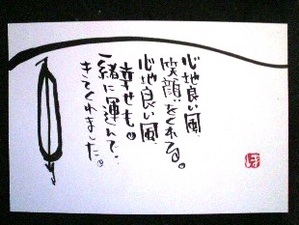 心地良い風
笑顔をくれる。
心地良い風
幸せも。
一緒に運んで
きてくれました。